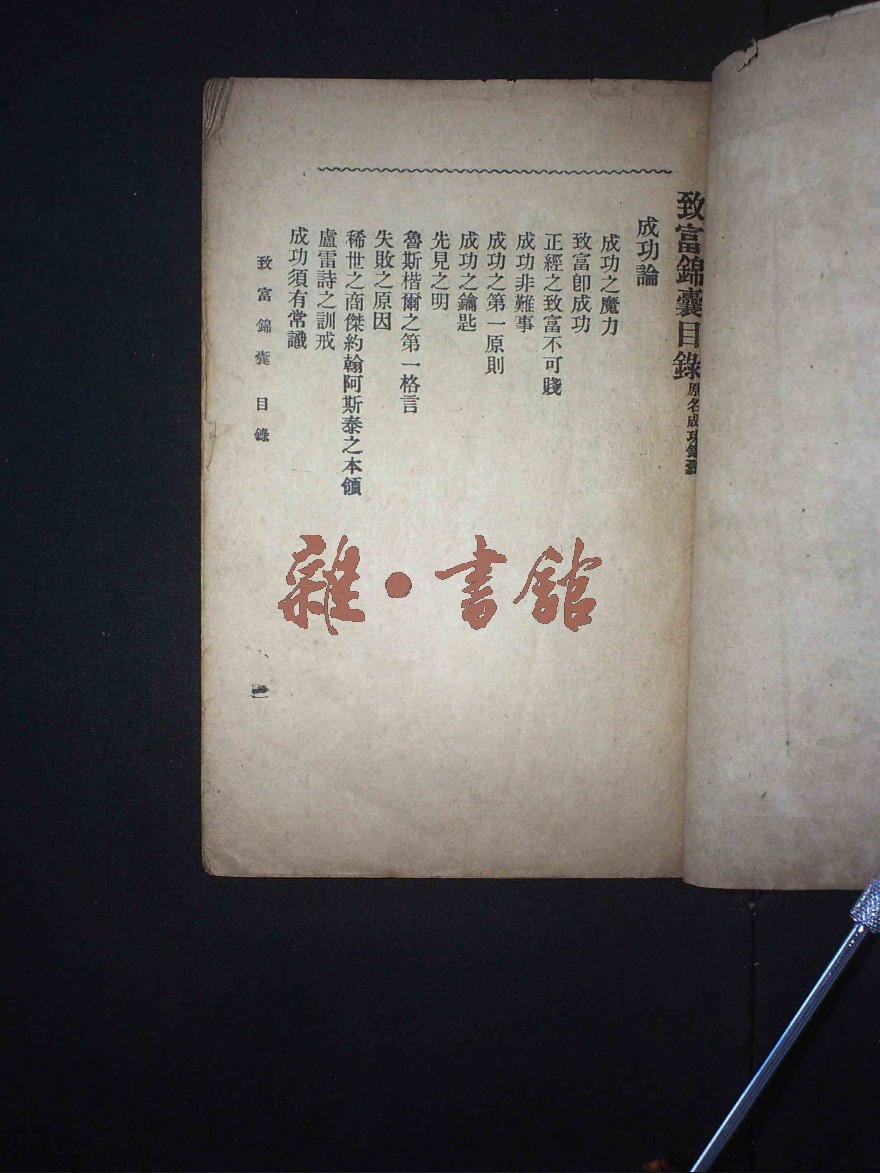 致富錦囊目錄 原名成功錦囊
成功論
成功之魔力
致富卽成功
正經之致富不可賤
成功非難事
成功之第一原則
成功之鑰匙
先見之明
魯斯楷爾之第一格言
失敗之原因
稀世之商傑約翰阿斯泰之本領
盧雷詩之訓戒
成功須有常識
致富錦囊 目錄
一
雜·書館